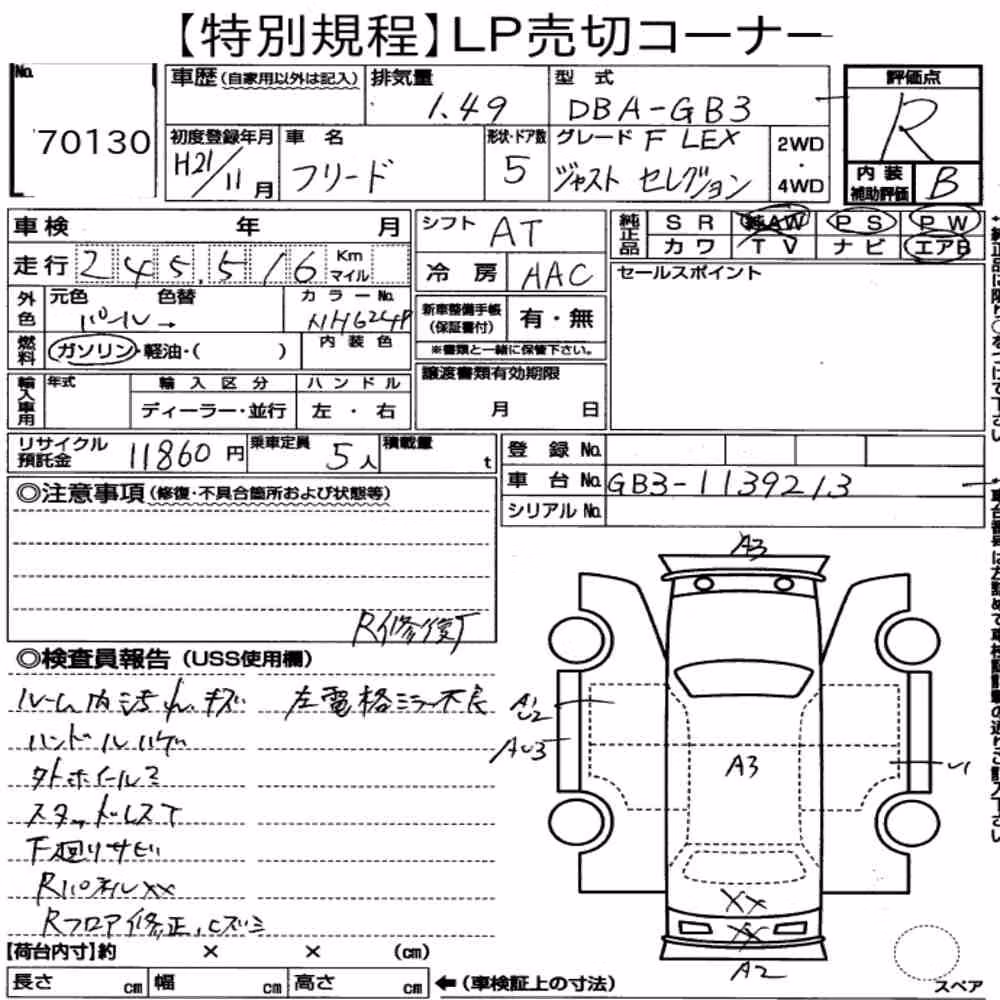 【特別規程】LP売切コーナー
No. 70130
車歴(自家用以外は記入)
排気量 1.49
型式 DBA-GB3
評価点 R
内装補助評価 B
初度登録年月 H21/11月
車名 フリード
形状・ドア数 5
グレード F LEX
ジャスト セレクション
2WD・4WD
車検 年 月
走行 245,516 Km マイル
シフト AT
冷房 AAC
純正品 SR 純AW PS PW
カワ TV ナビ エアB
セールスポイント
外色 元色 パール→ 色替
カラーNo. NH624P
燃料 ガソリン・軽油・( )
内装色
新車整備手帳(保証書付) 有・無
※書類と一緒に保管下さい。
譲渡書類有効期限
月 日
輸入車用 年式 輸入区分 ハンドル
ディーラー・並行 左・右
リサイクル預託金 11860円
乗車定員 5人
積載量 t
登録No.
車台No. GB3-1139213
シリアルNo.
◎注意事項(修復・不具合箇所および状態等)
R修復了
◎検査員報告(USS使用欄)
ルーム内汚れ、キズ 左電格ミラー不良
ハンドルハゲ
タトホイール2
スタッドレスT
下廻りサビ
Rパネルxx
Rフロア修正、ヒズミ
A3
A1
U2
AU3
A3
U1
XX
X
A2
【荷台内寸】約 × × (cm)
長さ cm 幅 cm 高さ cm
←(車検証上の寸法)
スペア
↑純正品は限り○をつけて下さい